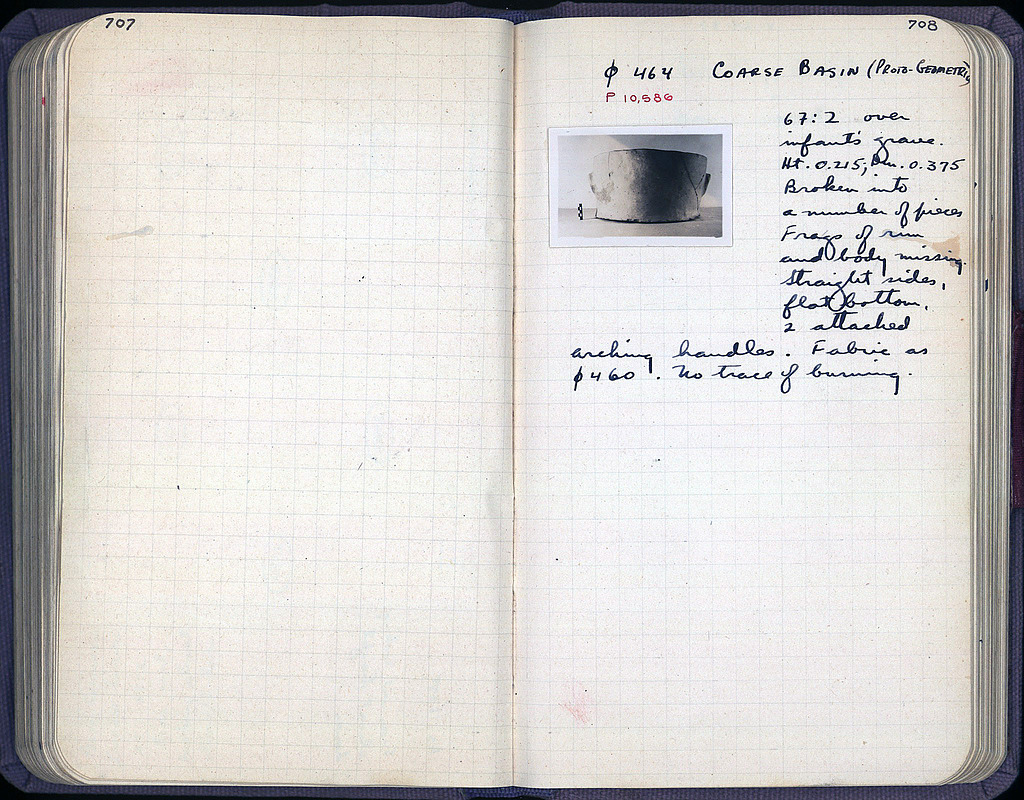 707
708
φ 464 COARSE BASIN (PROTO-GEOMETRIC)
P 10,586
67:2 over
infant's grave.
Ht. 0.215; Dm. 0.375
Broken into
a number of pieces
Frags of rim
and body missing.
Straight sides,
flat bottom.
2 attached
arching handles. Fabric as
φ 460. No trace of burning.